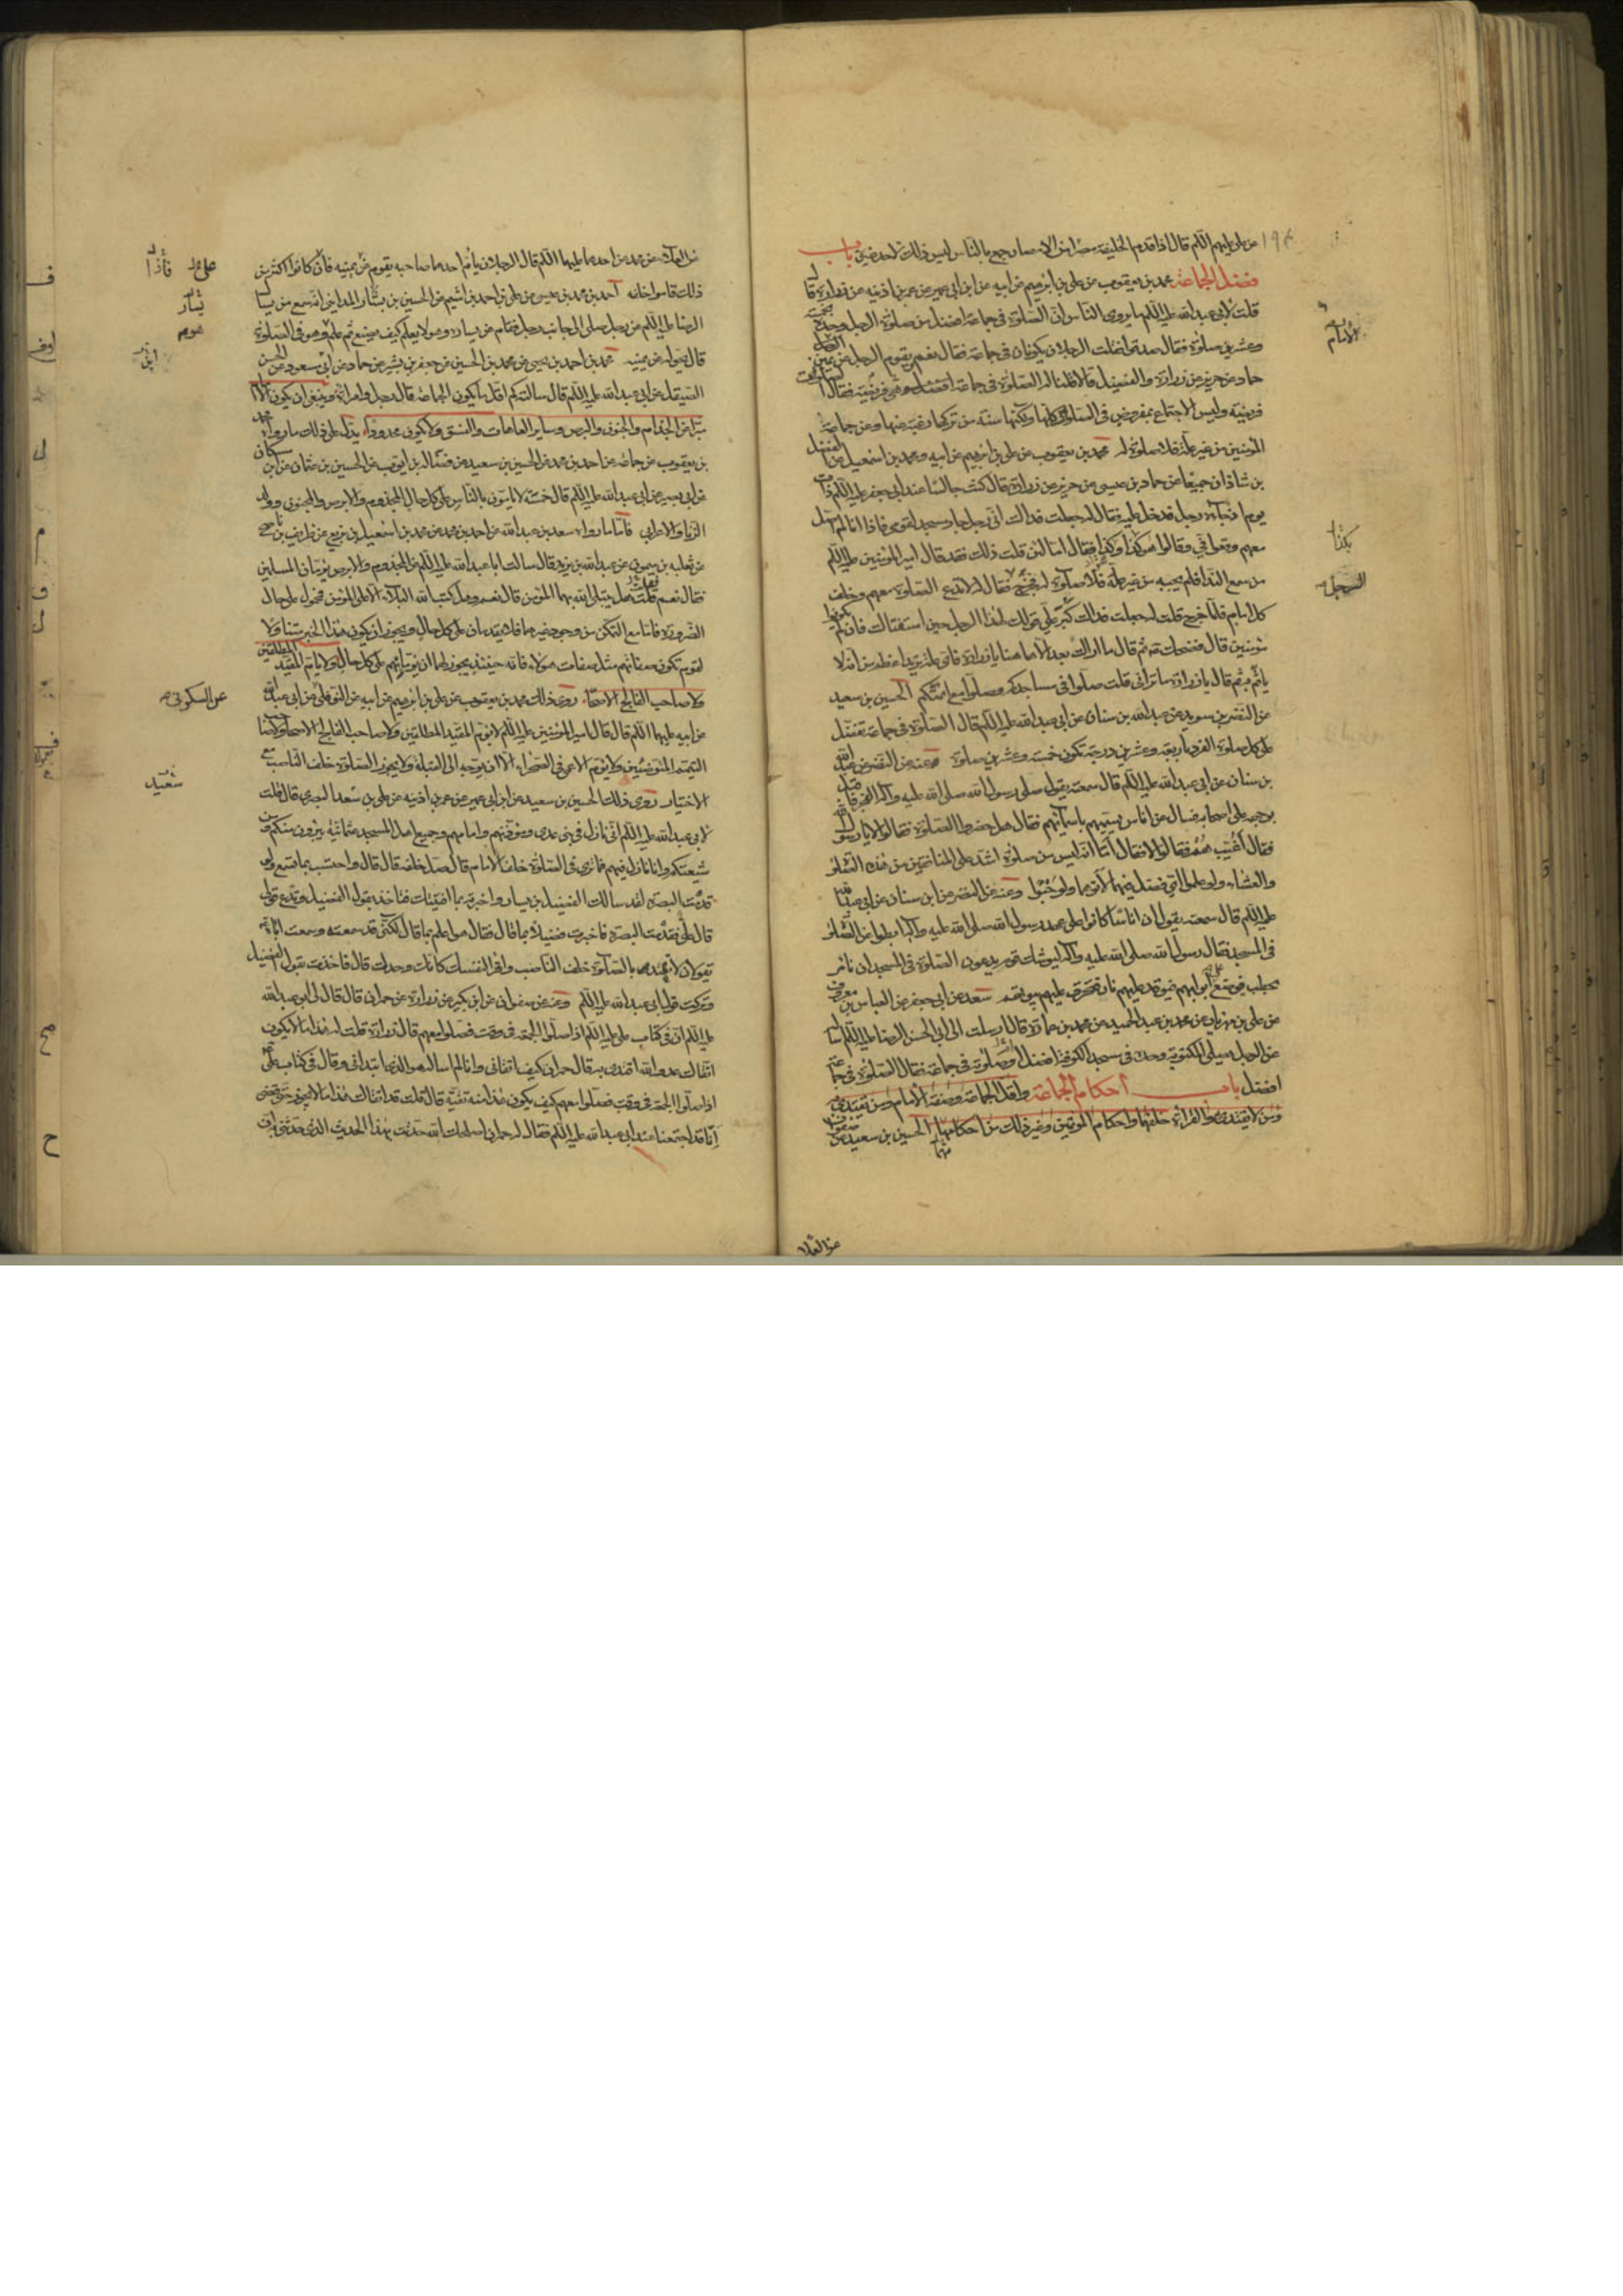 عن علي عليهم السلم قال اذا قدم الخليفة مصرا من الامصار جمع بالناس ليس ذلك لاحد غيره باب
فضل الجماعة محمد بن يعقوب عن علي بن ابرهيم عن ابيه عن ابن ابي عمير عن عمر بن اذينه عن زرارة قال
قلت لابي عبد الله عليه السلم ما يروي الناس ان الصلوة في جماعة افضل من صلوة الرجل وحده بخمسة
وعشرين صلوة فقال صدقوا فقلت الرجلان يكونان في جماعة فقال نعم ويقوم الرجل عن يمين
حماد عن حريز عن زرارة والفضيل قالا قلنا له الصلوة في جماعة افريضة هي فقال الصلوات
فريضة وليس الاجتماع بمفروض في الصلوة كلها ولكنها سنة من تركها رغبة عنها وعن جماعة
المؤمنين من غير علة فلا صلوة له محمد بن يعقوب عن علي بن ابرهيم عن ابيه ومحمد بن اسمعيل عن الفضل
بن شاذان جميعا عن حماد بن عيسى عن حريز عن زرارة قال كنت جالسا عند ابي جعفر عليه السلم ذات
يوم اذ جاءه رجل فدخل عليه فقال له جعلت فداك اني رجل جار مسجد لقومي فاذا انا لم اصل
معهم وقعوا في وقالوا هو كذا وكذا فقال اما لئن قلت ذلك فقد قال امير المؤمنين عليه السلم
من سمع النداء فلم يجبه من غير علة فلا صلوة له فخرج فقال له لا تدع الصلوة معهم وخلف
كل امام فلما خرج قلت له جعلت فداك كبر علي قولك لهذا الرجل حين استفتاك فان لم يكونوا
مؤمنين قال فضحك ثم قال ما اراك بعد الا هاهنا يا زرارة فاي علة تريد اعظم من انه لا
يأتم به ثم قال يا زرارة ما تراني قلت صلوا في مساجدكم وصلوا مع ائمتكم الحسين بن سعيد
عن النضر بن سويد عن عبد الله بن سنان عن ابي عبد الله عليه السلم قال الصلوة في جماعة تفضل
على كل صلوة الفرد باربعة وعشرين درجة تكون خمسة وعشرين صلوة وعنه عن النضر عن عبد الله
بن سنان عن ابي عبد الله عليه السلم قال سمعته يقول صلى رسول الله صلى الله عليه واله الفجر فاقبل
بوجهه على اصحابه فسال عن اناس يسميهم باسمائهم فقال هل حضروا الصلوة فقالوا لا يا رسول الله
فقال أغيب هم فقالوا لا فقال اما انه ليس من صلوة اشد على المنافقين من هذه الصلوة
والعشاء ولو علموا اي فضل فيهما لأتوهما ولو حبوا وعنه عن النضر عن ابن سنان عن ابي عبد الله
عليه السلم قال سمعته يقول ان اناسا كانوا على عهد رسول الله صلى الله عليه واله ابطوا عن الصلوة
في المسجد فقال رسول الله صلى الله عليه واله ليوشك قوم يدعون الصلوة في المسجد ان نامر
بحطب فيوضع على ابوابهم فيوقد عليهم نار فتحرق عليهم بيوتهم سعد عن ابي جعفر عن العباس بن معروف
عن علي بن مهزيار عن محمد بن عبد الحميد عن محمد بن عمارة قال ارسلت الى ابي الحسن الرضا عليه السلم اسأله
عن الرجل يصلي المكتوبة وحده في مسجد الكوفة افضل او صلوته في جماعة فقال الصلوة في جماعة
افضل باب احكام الجماعة واقل الجماعة وصفة الامام ومن يقتدى به
ومن لا يقتدى به والقراءة خلفهما واحكام المؤتمين وغير ذلك من احكامها الحسين بن سعيد عن صفوان
عن العلا
الامام
بكذا
الرجل
عن العلاء عن محمد عن احدهما عليهما السلم قال الرجلان يأم احدهما صاحبه يقوم عن يمينه فان كانوا اكثر من
ذلك قاموا خلفه احمد بن محمد بن عيسى عن علي بن احمد بن اشيم عن الحسين بن بشار المدايني انه سمع من يسأل
الرضا عليه السلم عن رجل صلى الى جانب رجل فقام عن يساره وهو لا يعلم كيف يصنع ثم علم وهو في الصلوة
قال يحوله عن يمينه محمد بن احمد بن يحيى عن محمد بن الحسين عن جعفر بن بشير عن حماد عن ابي مسعود عن الحسن
الصيقل عن ابي عبد الله عليه السلم قال سالته كم اقل ما يكون الجماعة قال رجل وامرأة وينبغي ان يكون الامام
مبرأ من الجذام والجنون والبرص وساير العاهات والفسق ولا يكون محدودا يدل على ذلك ما رواه محمد
بن يعقوب عن جماعة عن احمد بن محمد عن الحسين بن سعيد عن فضالة بن ايوب عن الحسين بن عثمان عن ابن مسكان
عن ابي بصير عن ابي عبد الله عليه السلم قال خمسة لا يامون بالناس على كل حال المجذوم والابرص والمجنون وولد
الزنا والاعرابي فاما ما رواه سعد بن عبد الله عن احمد بن محمد عن محمد بن اسمعيل بن بزيع عن ظريف بن ناصح
عن ثعلبة بن ميمون عن عبد الله بن يزيد قال سالت ابا عبد الله عليه السلم عن المجذوم والابرص يؤمان المسلمين
فقال نعم فقلت هل يبتلي الله بهما المؤمن قال نعم وهل كتب الله البلاء الا على المؤمن فمحمول على حال
الضرورة فاما مع التمكن من وجود غيرهما فلا يقتديان على كل حال ويجوز ان يكون هذا الخبر متناولا
لقوم تكون صفاتهم مثل صفات هؤلاء فانه حينئذ يجوز لهما ان يؤماهم على كل حال ولا يام المقيد المطلقين
ولا صاحب الفالج الاصحاء روى ذلك محمد بن يعقوب عن علي بن ابرهيم عن ابيه عن النوفلي عن ابي عبد الله
عن ابيه عليهما السلم قال قال امير المؤمنين عليه السلم لا يؤم المقيد المطلقين ولا صاحب الفالج الاصحاء ولا صاحب
التيمم المتوضيين ولا يؤم الاعمى في الصحراء الا ان يوجه الى القبلة ولا يجوز الصلوة خلف الناصب مع
الاختيار روى ذلك الحسين بن سعيد عن ابن ابي عمير عن عمر بن اذينه عن علي بن سعد البصري قال قلت
لابي عبد الله عليه السلم اني نازل في بني عدي ومؤذنهم وامامهم وجميع اهل المسجد عثمانية يبرؤن منكم ومن
شيعتكم وانا نازل فيهم فما ترى في الصلوة خلف الامام قال صل خلفه قال قال واحتسب بما تسمع ولو
قدمت البصرة لقد سالك الفضيل بن يسار واخبرته بما افتيتك فتاخذ بقول الفضيل وتدع قولي
قال علي فقدمت البصرة فاخبرت فضيلا بما قال فقال هو اعلم بما قال لكني قد سمعته وسمعت اباه
يقولان لا يعتد بالصلوة خلف الناصب واقرا لنفسك كانك وحدك قال فاخذت بقول الفضيل
وتركت قول ابي عبد الله عليه السلم وعنه عن صفوان عن ابن بكير عن زرارة عن حمران قال قال لي ابو عبد الله
عليه السلم ان في كتاب علي عليه السلم اذا صلوا الجمعة في وقت فصلوا معهم قال زرارة قلت له هذا ما لا يكون
اتقاك عدو الله اقتدي به قال حمران كيف اتقاني وانا لم اساله هو الذي ابتداني وقال في كتاب علي
اذا صلوا الجمعة في وقت فصلوا معهم كيف يكون هذا منه تقية قال قلت قد اتقاك هذا ما لا يجوز حتى قضى
انا قد اجتمعنا عند ابي عبد الله عليه السلم فقال له حمران اصلحك الله حدثت هذا الحديث الذي حدثتني ان
بشار
عن السكوني
سعيد